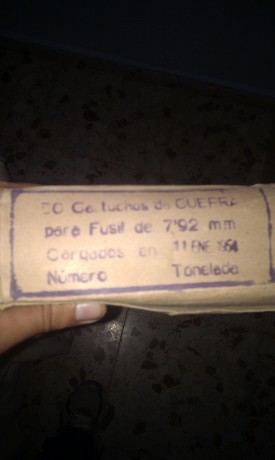 50 Cartuchos de GUERRA
para Fusil de 7'92 mm
Cargados en 11 ENE 1954
Número Tonelada